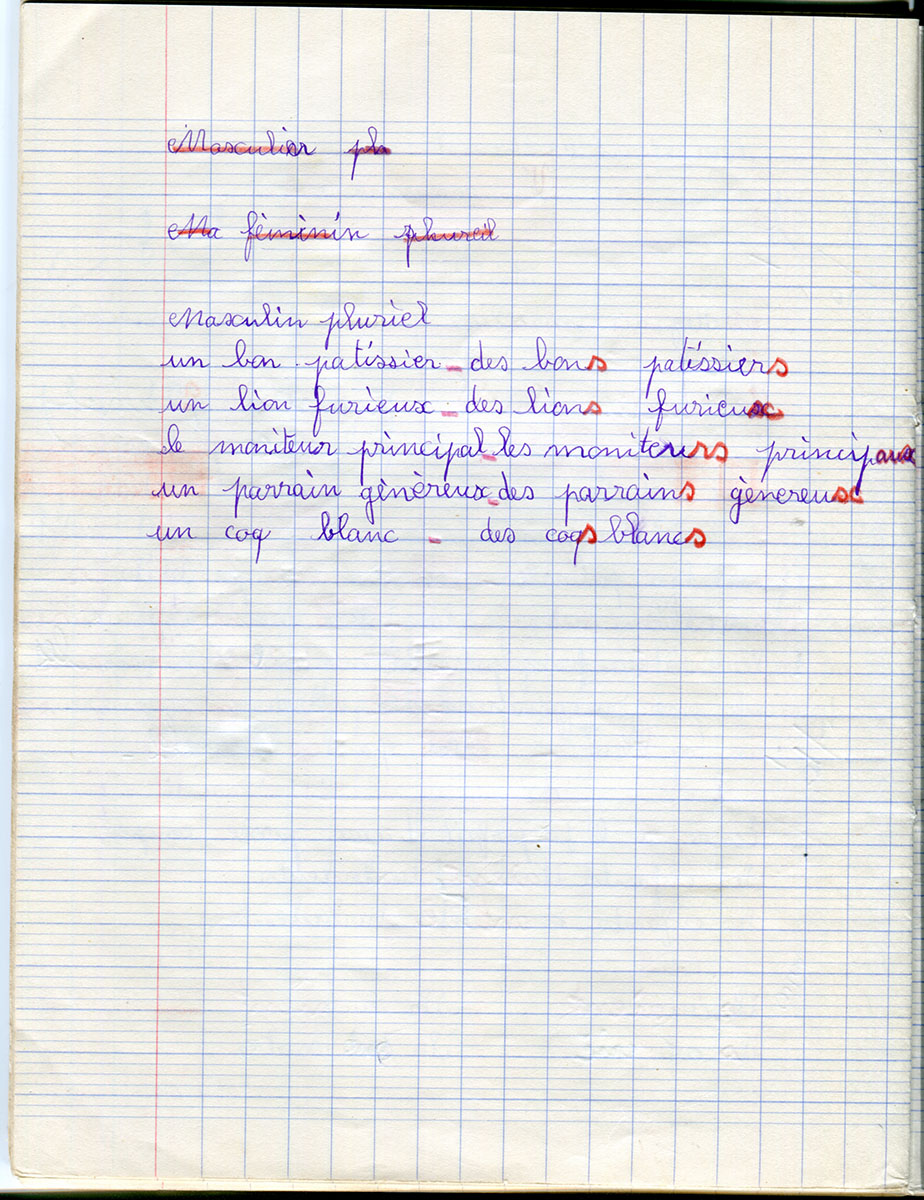 Masculin pl
Ma féminin pluriel
Masculin pluriel
un bon patissier - des bons patissiers
un lion furieux - des lions furieux
le moniteur principal - les moniteurs principaux
un parrain gènèreux - des parrains gènereux
un coq blanc - des coqs blancs